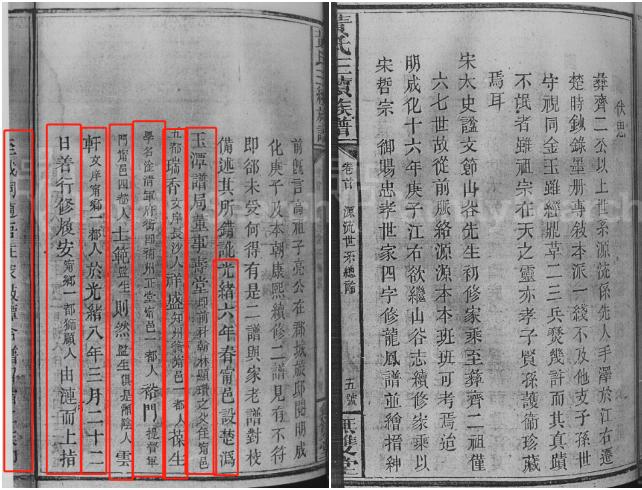 伏思
彝齊二公以上世系源流係先人手澤於江右遷
楚時鈔錄墨册專敍本派一綫不及他支子孫世
守視同金玉雖經鼎革二三兵燹幾許而其真蹟
不泯者雖祖宗在天之靈亦孝子賢孫護衞珍藏
焉耳
宋太史諡文節山谷先生初修家乘至彝齊二祖僅
六七世故從前脈絡源源本本班班可考焉迨
明成化十六年庚子江右欲繼山谷志續修家乘以
宋哲宗 御賜忠孝世家四字修龍鳳譜並繪搢紳
黃氏三續族譜 卷首 源流世系總論 五號 無雙堂
前旣言高祖子亮公在郡城旅邸閱明成
化庚子及本朝康熙續修二譜見有不符
卽卻未受何得有是二譜與家老譜對校
備述其所錯訛光緒六年春甯邑設楚溈
玉潭譜局董事壽堂卽前科翰林顯瓚之父住甯邑
五都瑞香文庠長沙人祥盛知州銜甯邑一都人葆生
學名
府
正堂甯邑一都人裕門提督軍
門甯邑四都人士範監生則然監生俱是湘陰人雲
軒文庠甯鄉一都人於光緒八年三月二十二
日善行修履安甯鄉一都衡頤人由漣而上指